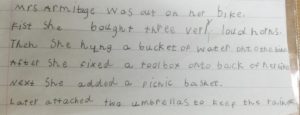 Mrs Armitage was out on her bike.
Fist She bought three very loud horns.
Then She hung a bucket of water onto the
After she fixed a toolbox onto back of her
Next She added a picnic basket.
Later attached two umbrellas to keep the